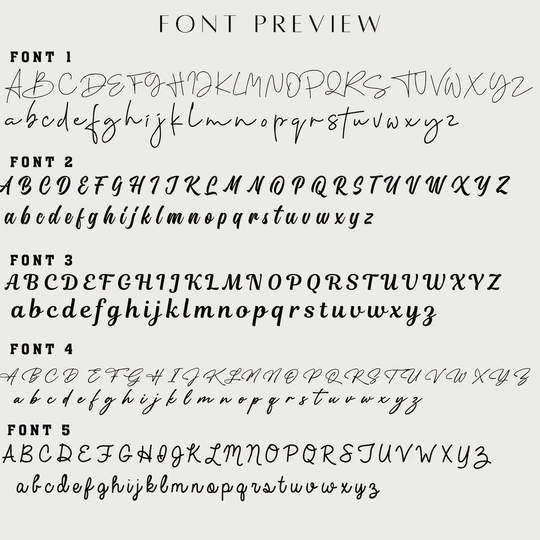 FONT PREVIEW
FONT 1
ABCDEFGHIJKLMNOPQRSTUVWXYZ
abcdefghijklmnopqrstuvwxyz
FONT 2
ABCDEFGHIJKLMNOPQRSTUVWXYZ
abcdefghijklmnopqrstuvwxyz
FONT 3
ABCDEFGHIJKLMNOPQRSTUVWXYZ
abcdefghijklmnopqrstuvwxyz
FONT 4
ABCDEFGHIJKLMNOPQRSTUVWXYZ
abcdefghijklmnopqrstuvwxyz
FONT 5
ABCDEFGHIJKLMNOPQRSTUVWXYZ
abcdefghijklmnopqrstuvwxyz